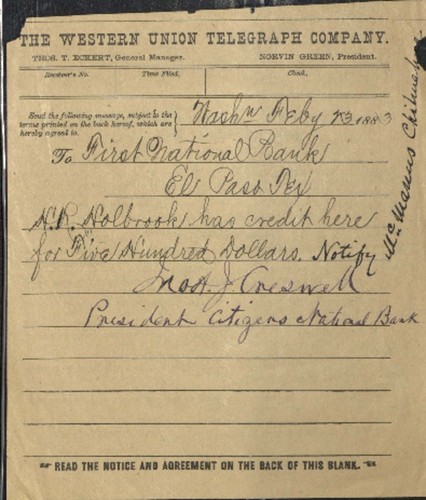 THE WESTERN UNION TELEGRAPH COMPANY.
THOS. T. ECKERT, General Manager. NORVIN GREEN, President.
Receiver's No. Time Filed, Check,
Send the following message, subject to the
terms printed on the back hereof, which are
hereby agreed to.
Washn Feby 23 1883
To First National Bank
El Paso Tex
Holbrook has credit here
for Five Hundred Dollars. Notify
McManus Chihuahua
Jno A. J. Creswell
President Citizens National Bank
READ THE NOTICE AND AGREEMENT ON THE BACK OF THIS BLANK.